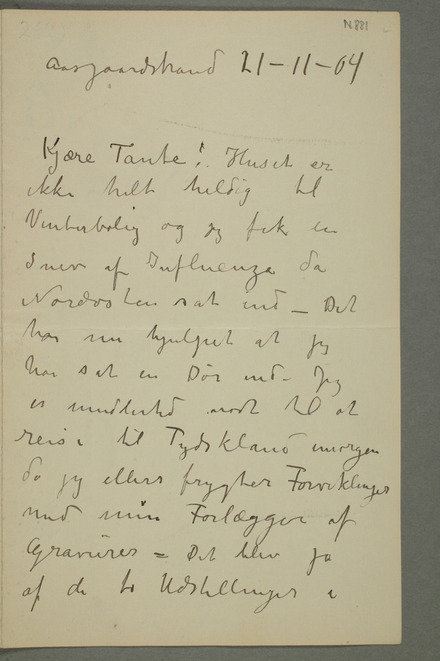 N.881
Aasgaardstrand 21-11-04
Kjære Tante! Huset er
ikke helt heldig til
Vinterbolig og jeg fik en
Snev af Influenza da
Nordosten sat ind – Det
har nu hjulpet at jeg
har sat en Dør ind – Jeg
er imidlertid nødt til at
reise til Tydskland imorgen
da jeg ellers frygter Forviklinger
med min Forlægger af
Gravürer = Det blev jo
af de to Udstillinger i